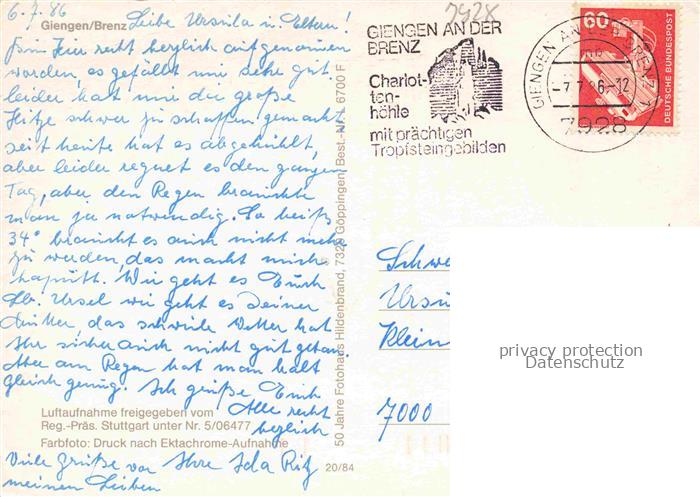 6.7.86
Giengen/Brenz Liebe Ursula u. Eltern!
Bin hier recht herzlich aufgenommen
worden, es gefällt mir sehr gut.
leider hat mir die große
Hitze schwer zu schaffen gemacht
seit heute hat es abgekühlt,
aber leider regnet es den ganzen
Tag, aber den Regen brauchte
man ja notwendig. So heiß
34° braucht es auch nicht mehr
zu werden, das macht mich
kaputt. Wie geht es Euch
lb. Ursel wie geht es Deiner
Mutter, das schwüle Wetter hat
Ihr sicher auch nicht gut getan.
Aber am Regen hat man bald
gleich genug. Ich grüße Euch
Alle recht
herzlich
Luftaufnahme freigegeben vom
Reg.-Präs. Stuttgart unter Nr. 5/06477
Farbfoto: Druck nach Ektachrome-Aufnahme
Viele Grüße von Ihre Ida
meinen Lieben
20/84
50 Jahre Fotohaus Hildenbrand, 7320 Göppingen, Best.-Nr. L 6700 F
7928
GIENGEN AN DER
BRENZ
Charlot-
ten-
höhle
mit prächtigen
Tropfsteingebilden
GIENGEN AN DER BRENZ 1
-7.7.86-12
7928
60
DEUTSCHE BUNDESPOST
Schwe
Ursu
Klein
7000
privacy protection
Datenschutz